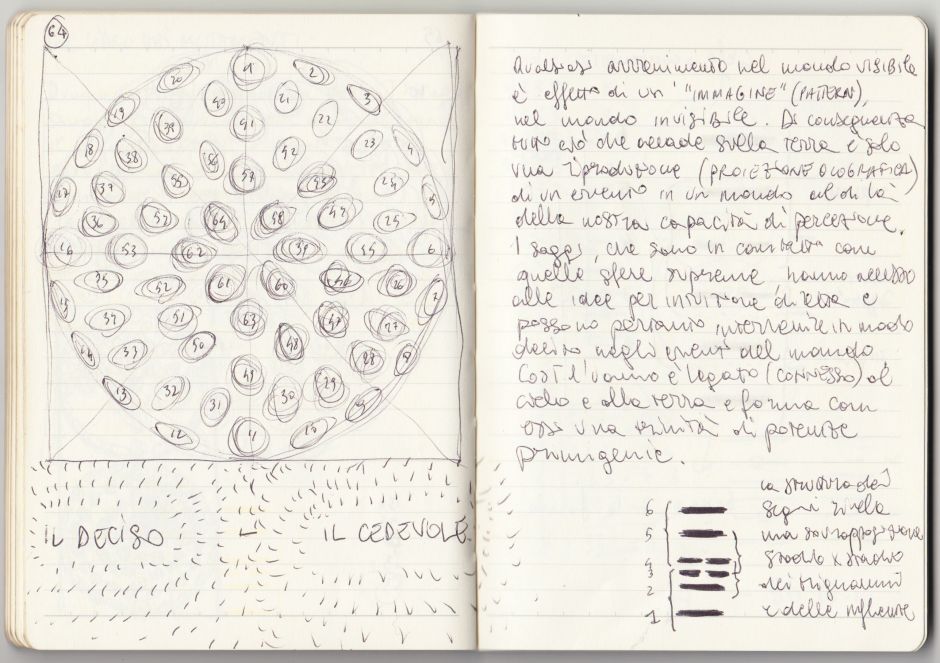 64
1
20 2
40 21 3
19 41 22
39 42 23 4
18 38 56 57
55 43 24
17 37 5
36 52 64 58 42 25
16 53 62 59 55 6
35 52 61 60 46 26
15 7
34 51 63 47 27
14 33 50 48 28 8
49 29
13 32 31 30 9
12 11 10
IL DECISO IL CEDEVOLE
Qualsiasi avvenimento nel mondo visibile
è effetto di un' "IMMAGINE" (PATTERN),
nel mondo invisibile. Di conseguenza
tutto ciò che accade sulla terra è solo
una riproduzione (PROIEZIONE OLOGRAFICA)
di un evento in un mondo al di là
della nostra capacità di percezione.
I saggi, che sono in contatto con
quelle sfere supreme hanno accesso
alle idee per intuizione diretta e
possono pertanto intervenire in modo
deciso negli eventi del mondo
così l'uomo è legato (CONNESSO) al
cielo e alla terra e forma con
essi una trinità di potenze
primigenie.
la struttura dei
6 segni rivela
5 una sovrapposizione
4 stadio x stadio
3 dei trigrammi
2
1 e delle influenze